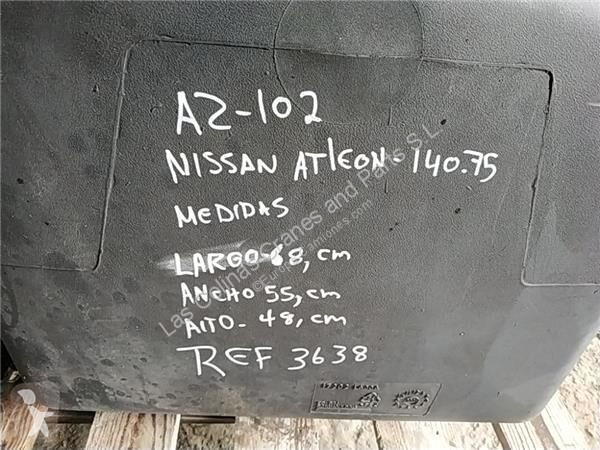 AZ-102
NISSAN ATLEON-140.75
MEDIDAS
LARGO-68,cm
ANCHO 55,cm
AlTO-48,cm
REF 3638
Las Colinas Cranes and Parts S.L.